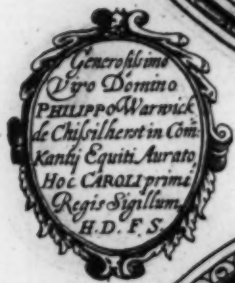 Generosissimo
Viro Domino
PHILIPPO Warwick
de Chisilherst in Com:
Kantij Equiti Aurato,
Hoc CAROLI primi
Regis Sigillum
H. D. F. S.